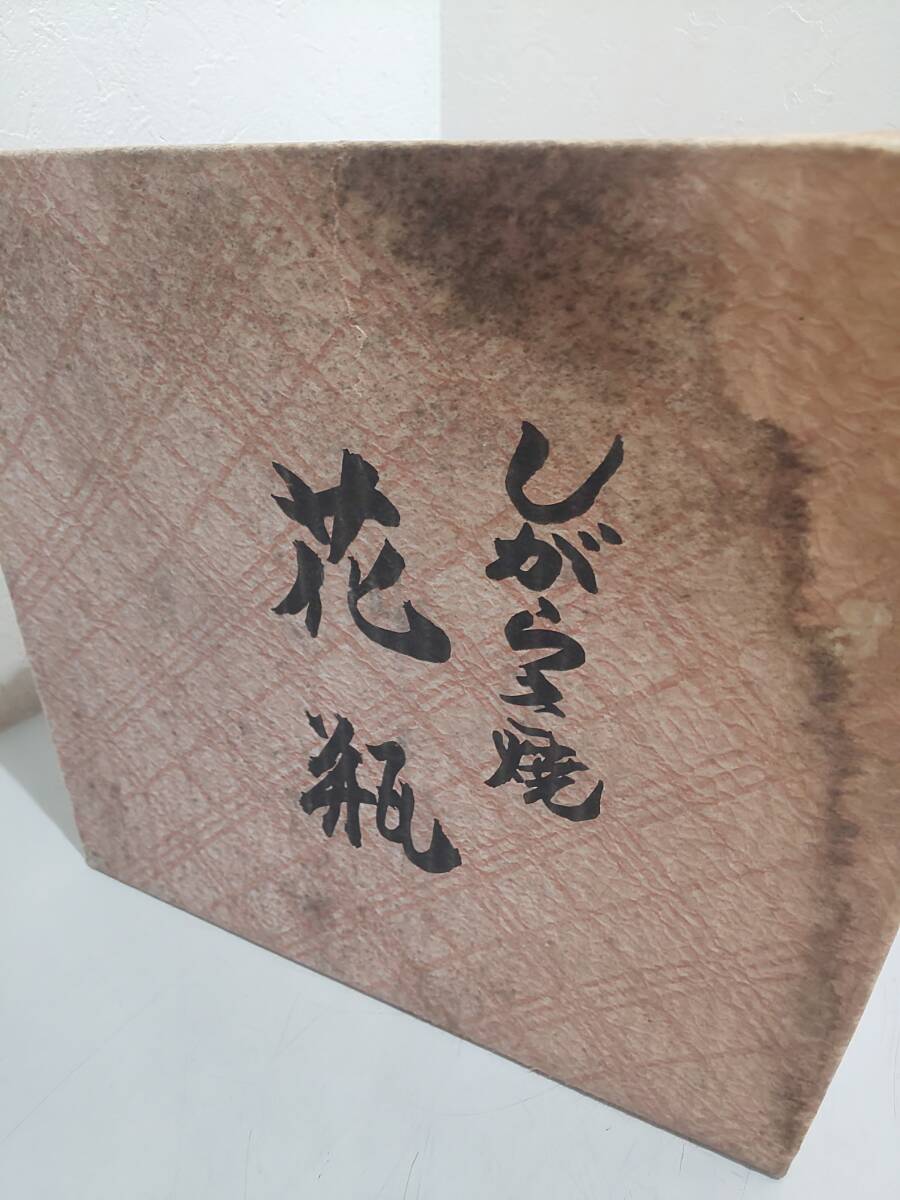 しがらき焼
花瓶